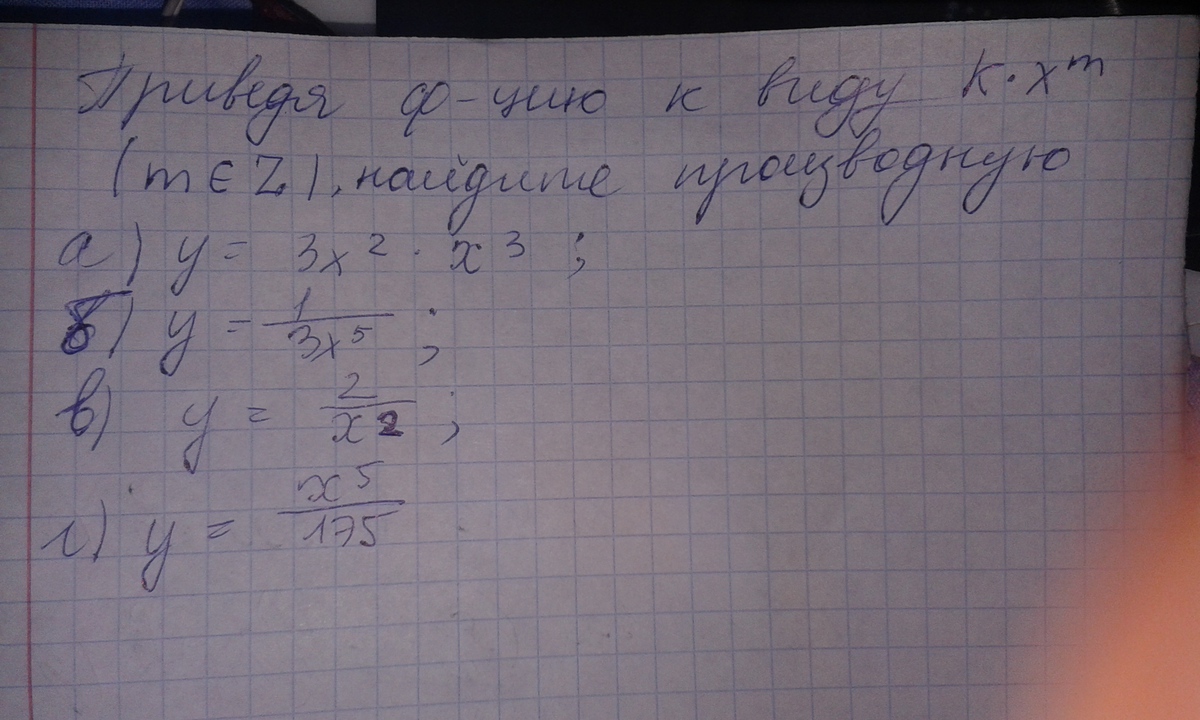 Приведя ф-цию к виду k·x^m
(m ∈ Z), найдите производную
а) y = 3x² · x³ ;
б) y = 1/3x⁵ ;
в) y = 2/x² ;
г) y = x⁵/175